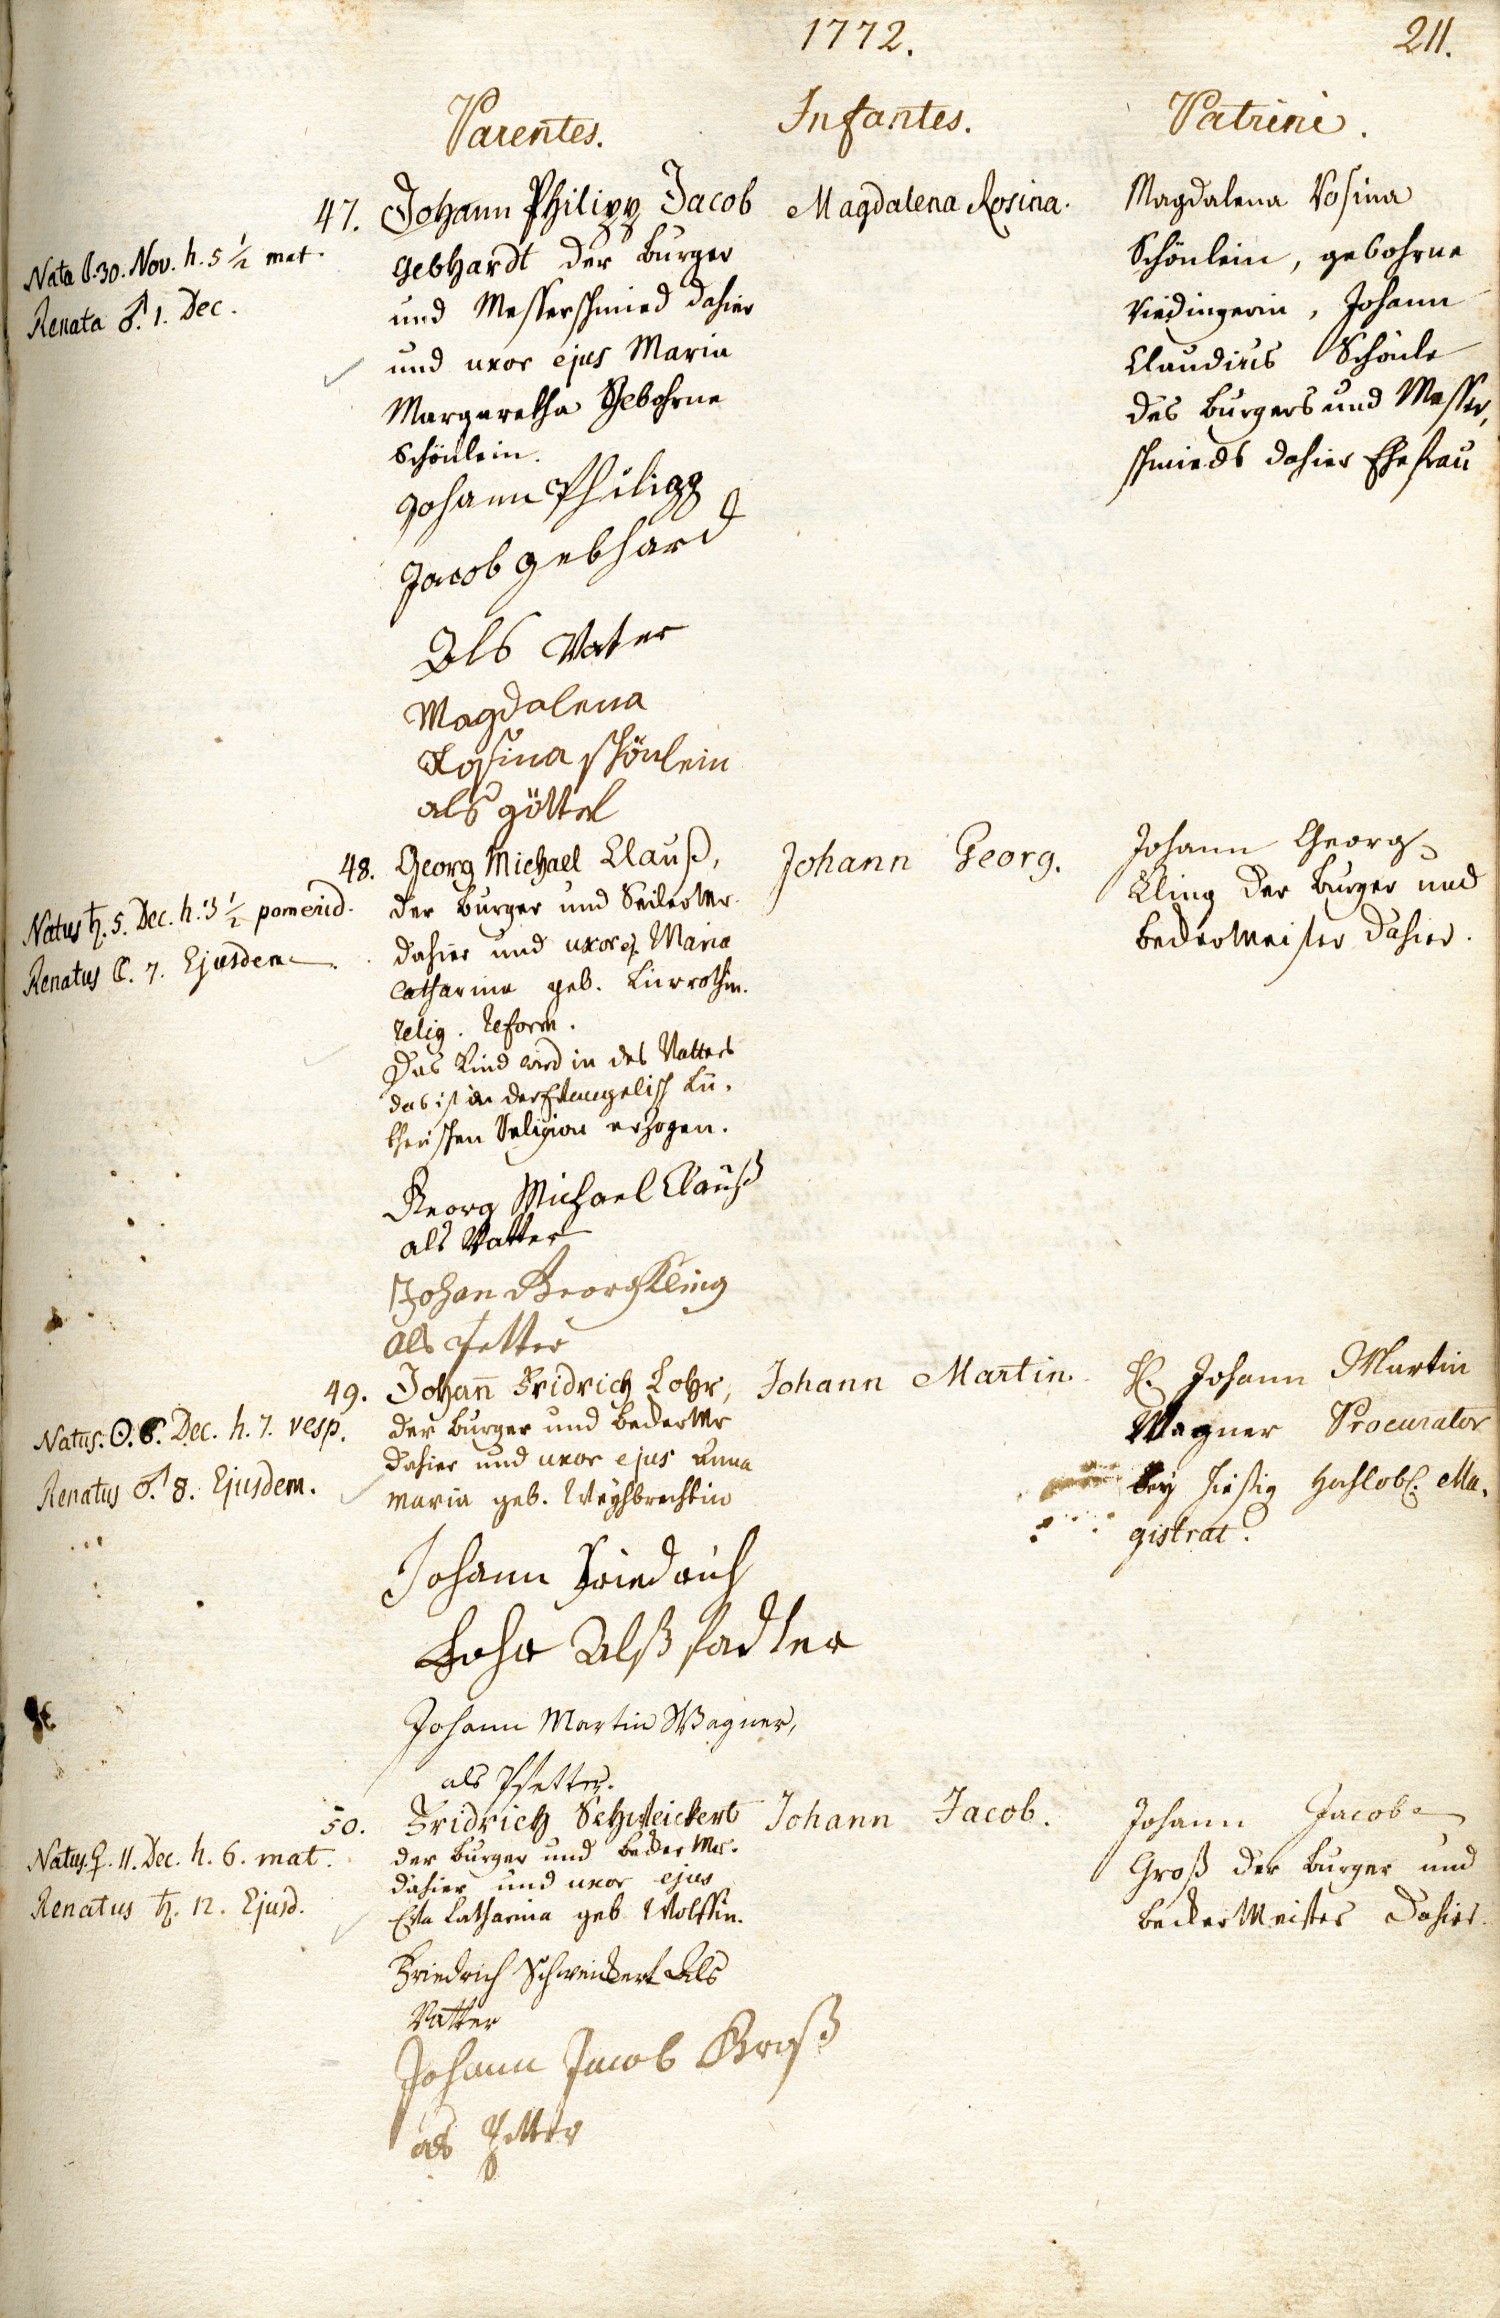 1772.
211.
Parentes.
Infantes.
Patrini.
47. Johann Philipp Jacob
Gebhardt der burger
und Messerschmied dahier
und uxor ejus Maria
Margaretha Gebohrne
Schönlein.
Johann Philipp
Jacob gebhard
Als Vater
Magdalena
Rosina schönlein
als göttel
Nata ☾. 30. Nov. h. 5 ½ mat.
Renata ♂. 1. Dec.
Magdalena Rosina.
Magdalena Rosina
Schönlein, gebohrne
Johann
Claudius Schönle
des burgers und Messer,
schmieds dahier Ehefrau
48. Georg Michael Clauß,
der burger und Seiler Mr.
dahier und uxor ej. Maria
Catharina geb.
relig. reform.
Das Kind wird in des Vatters
das ist in der Evangelisch Lu,
therischen Religion erzogen.
Georg Michael Clauß
als Vatter
Johan Georg Kling
als Petter
Natus ♄. 5. Dec. h. 3 ½ pomerid.
Renatus ☾. 7. Ejusdem.
Johann Georg.
Johann Georg
Kling der burger und
becker Meister dahier.
49. Johan̄ Fridrich Lohr,
der burger und becker Mr
dahier und uxor ejus Anna
Maria geb. Weyhbrechtin
Johann Friedrich
Lohr Alß
Johann Martin Wagner,
als Pfetter.
Natus. ☉. 6. Dec. h. 7. vesp.
Renatus ♂. 8. Ejusdem.
Johann Martin.
H. Johann Martin
Wagner Procurator
bey hießig hochlobl. Ma,
gistrat.
50. Fridrich Schweickert
der burger und becker Mr.
dahier und uxor ejus
Eva Catharina geb. Wolffin.
Friedrich Schweickert Als
Vatter
Johann Jacob Groß
als Petter
Natus. ♀. 11. Dec. h. 6. mat.
Renatus ♄. 12. Ejusd.
Johann Jacob.
Johann Jacob
Groß der burger und
becker Meister dahier.